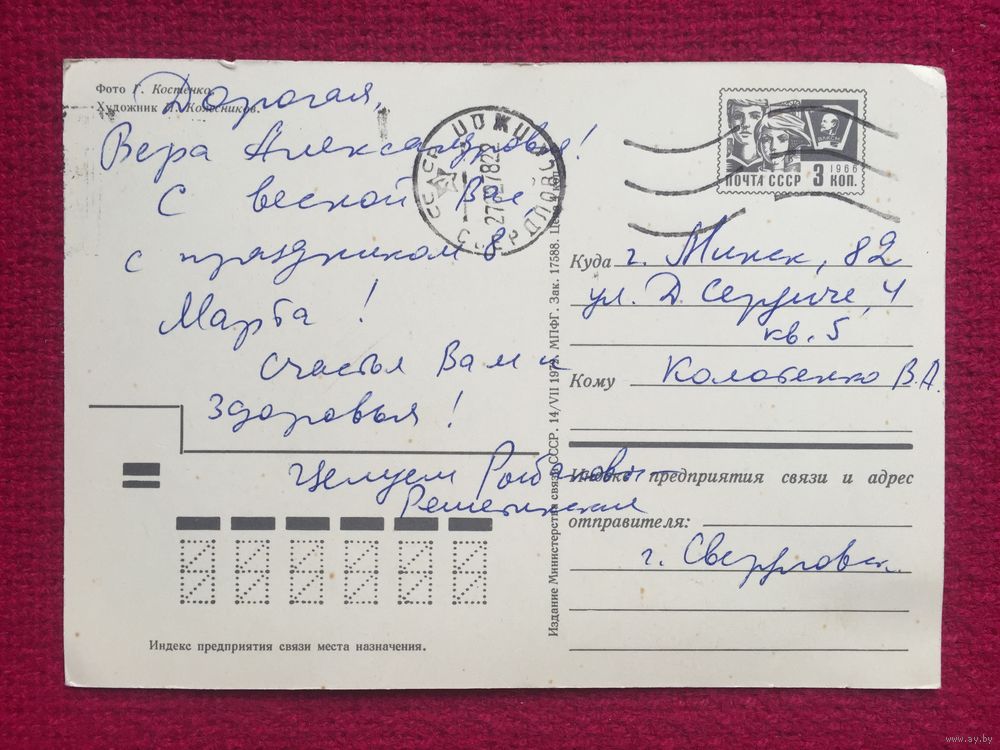 Фото Г. Костенко.
Художник Колесников.
Дорогая,
Вера Александровна!
С весной Вас,
с праздником 8
Марта!
Счастья Вам и
здоровья!
Целуем
Индекс предприятия связи места назначения.
СССР
27 2 78 22
СССР
Издание Министерства связи СССР. 14/VII 1972. МПФГ. Зак. 17588. Цена коп.
ПОЧТА СССР 3 КОП.
1966
ВЛКСМ
Куда г. Минск, 82
ул. Д. Сердича, 4
кв. 5
Кому Колотенко В.А.
Индекс предприятия связи и адрес
отправителя:
г. Свердловск
www.ay.by